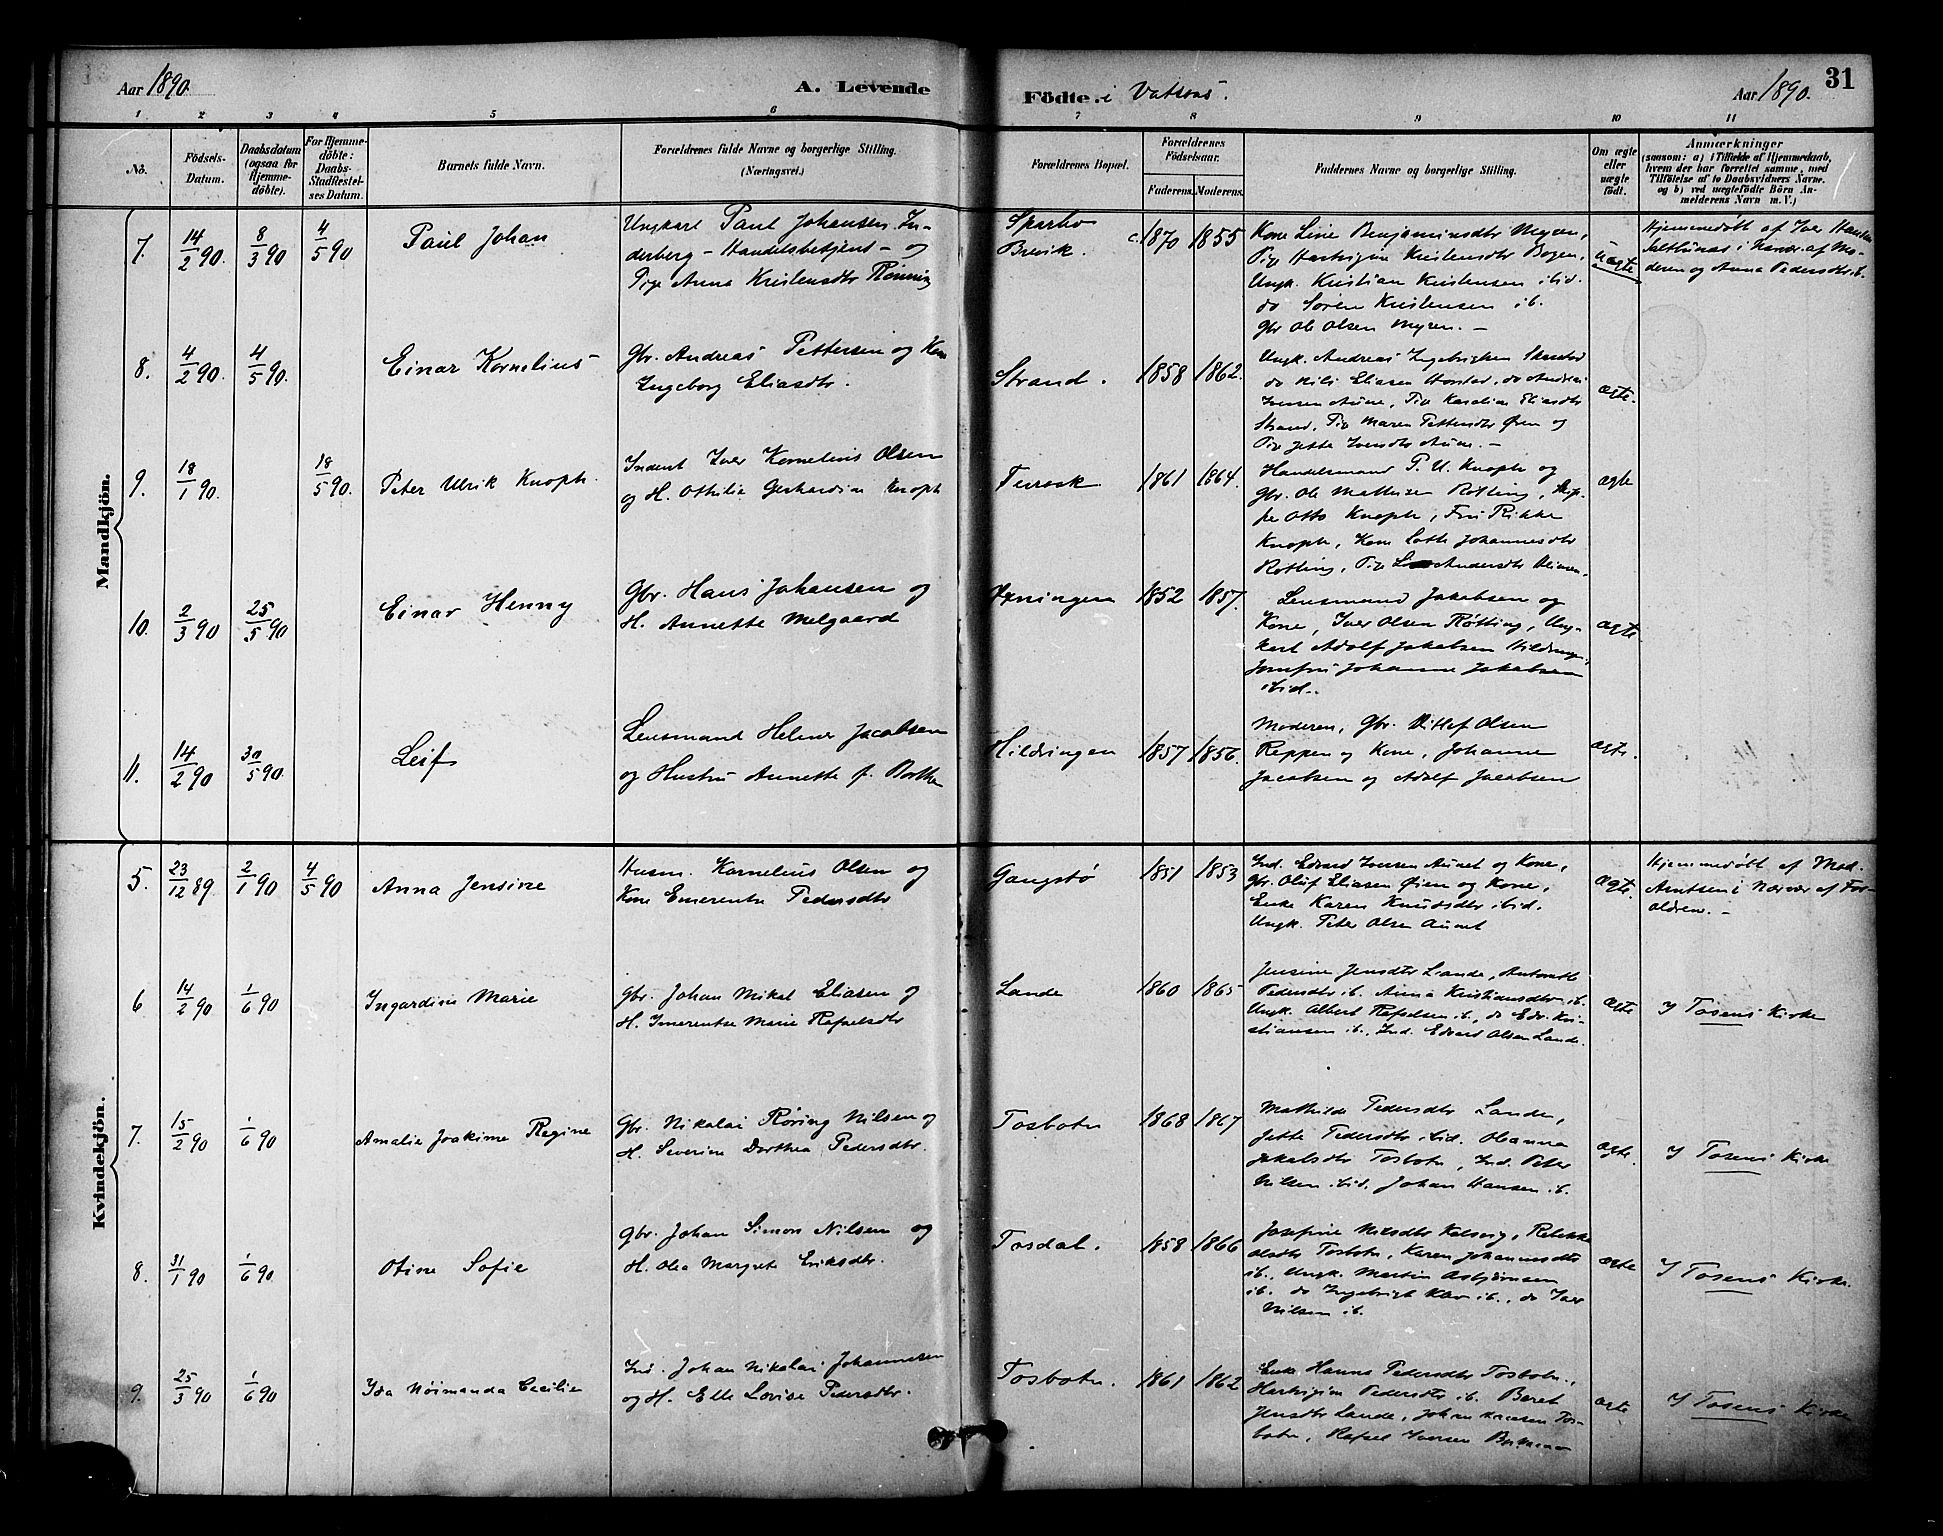 Aar 1890.
A. Levende
Födte. i Vatsaas.
Aar 1890. 31
1 2 3 4 5 6 7 8 9 10 11
No.
Födsels-
Datum.
Daabsdatum
(ogsaa for
Hjemme-
döbte).
For Hjemme-
döbte:
Daabs-
Stadfæstel-
ses Datum.
Barnets fulde Navn.
Forældrenes fulde Navne og borgerlige Stilling.
(Næringsvei.)
Forældrenes Bopæl.
Forældrenes
Födselsaar.
Faderens. Moderens.
Faddernes Navne og borgerlige Stilling.
Om ægte
eller
uægte
födt.
Anmærkninger
(saasom: a) i Tilfælde af Hjemmedaab,
hvem der har forrettet samme, med
Tilföielse af to Daabsvidners Navne,
og b) ved uægtefödte Börn An-
melderens Navn m. V.)
Mandkjön.
7. 14/2 90. 8/3 90 4/5 90
Paul Johan
Ungkarl Paul Johansen In-
derberg - Handelsbetjent - og
Pige Anna Kristensdtr Rönning
Sparbo
Brevik.
c. 1870 1855
Kone Line Benjaminsdtr Myren,
Pige Hartvigine Kristensdtr Bogen,
Ungk. Kristian Kristensen ibid.
do Sören Kristensen ib.
Gbr Ole Olsen Myren. -
Uægte
Hjemmedøbt af Iver Hansen
i Nærvær af Mo-
deren og Anna Pedersdtr ib.
8. 4/2 90. 4/5 90.
Einar Kornelius
Gbr. Andreas Pettersen og Kone
Ingeborg Eliasdtr.
Strand.
1858 1862.
Ungk. Andreas Ingebrigtsen
do Nils Eliasen Horstad, do Andreas
Iversen Aune, Pige Karoline Eliasdtr
Strand, Pige Maren Pettersdtr Øren og
Pige Jette Iversdtr Aune. -
ægte.
9. 18/1 90. 18/5 90.
Peter Ulrik Knoph.
Inderst Iver Kornelius Olsen
og H. Othilie Gerhardine Knoph
Terraak
1861 1864.
Handelsmand P. U. Knoph og
Gbr. Ole Mathisen Røtting, Skip-
per Otto Knoph, Fru Rikke
Knoph, Kone Lotte Johannesdtr
Røtting, Pige Andersdtr
ægte
10. 2/3 90 25/5 90
Einar Henny
Gbr. Hans Johansen og
H. Annette Melgaard
Øxningen
1852 1857.
Lensmand Jakobsen og
Kone, Iver Olsen Røtting, Ung-
karl Adolf Jakobsen Hildringen,
Jomfru Johanne Jakobsen
ibid.
ægte.
11. 14/2 90 30/5 90.
Leif
Lensmand Helmer Jacobsen
og Hustru Annette f. Bothen
Hildringen
1857 1856.
Moderen, Gbr. Ditlef Olsen
Reppen og Kone, Johanne
Jacobsen og Adolf Jacobsen
ægte.
Kvindekjön.
5. 23/12 89 2/1 90 4/5 90
Anna Jensine
Husm. Kornelius Olsen og
Kone Emerentse Pedersdtr
Gangstø
1851 1853
Ind. Edvard Iversen Aunet og Kone,
Gbr. Oluf Eliasen Øien og Kone,
Enke Karen Knudsdtr ibid.
Ungk. Peter Olsen Aunet
ægte.
Hjemmedøbt af Mad.
Arntsen i Nærvær af For-
ældrene. -
6 14/2 90 1/6 90
Ingardine Marie
Gbr. Johan Mikal Eliasen og
H. Imerentse Marie Rafaelsdtr
Lande
1860 1865
Jensine Jensdtr Lande, Antonette
Pedersdtr ib. Anna Kristiansdtr ib.
Ungk. Albert Rafaelsen ib., do Edv. Kri-
stiansen ib., Ind. Edvard Olsen Lande.
ægte
I Tosens Kirke
7. 15/2 90 1/6 90
Amalie Joakime Regine
Gbr. Nikolai Röring Nilsen og
H. Severine Dorthea Pedersdtr.
Tosbotn
1868 1867
Mathilde Pedersdtr Lande,
Jette Pedersdtr ibid. Oleanna
Jakobsdtr Tosbotn, Ind. Peter
Nilsen ibid. Johan Hansen ib.
ægte.
I Tosens Kirke
8. 31/1 90 1/6 90
Otine Sofie
Gbr. Johan Simon Nilsen og
H. Olea Margrete Eriksdtr.
Tosdal.
1858 1866
Josefine Nilsdtr Kalvvig, Rebekka
Olsdtr Tosbotn, Karen Johannesdtr
ib., Ungk. Martin Asbjörnsen
ib. do Ingebrigt ib., do Iver
Nilsen ib.
ægte
I Tosens Kirke.
9. 25/3 90 1/6 90
Ida Nöimanda Cecilie
Ind. Johan Nikolai Johannesen
og H. Elle Lovise Pedersdtr.
Tosbotn.
1861 1862
Enke Hanna Pedersdtr Tosbotn,
Hartvigine Pedersdtr ib. Beret
Jensdtr Lande, Johan Tos-
botn, Rafael Iversen
ægte
I Tosens Kirke